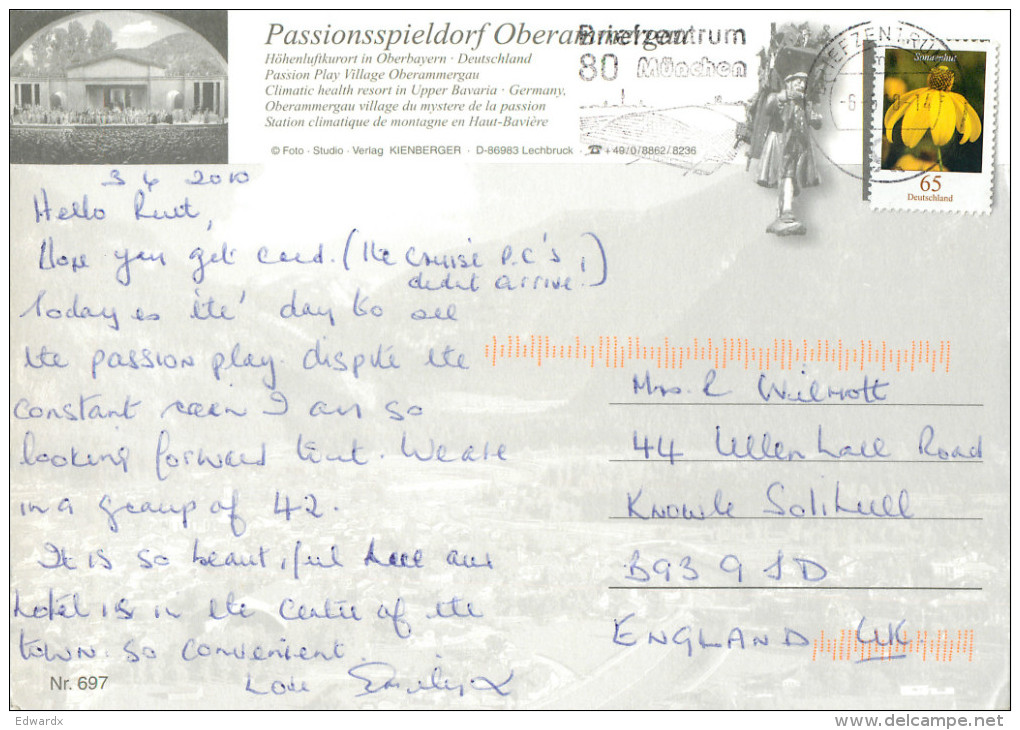 Passionsspieldorf Oberammergau
Höhenluftkurort in Oberbayern · Deutschland
Passion Play Village Oberammergau
Climatic health resort in Upper Bavaria · Germany,
Oberammergau village du mystere de la passion
Station climatique de montagne en Haut-Bavière
© Foto · Studio · Verlag KIENBERGER · D-86983 Lechbruck · ☎ +49/0/8862/8236
Briefzentrum
80 München
BRIEFZENTRUM
Sonnenhut
65
Deutschland
3 6 2010
Hello Rut,
Hope you get card. (the cruise P.C's
didnt arrive!)
Today is the day to see
the passion play. dispite the
constant rain I am so
looking forward to it. We are
in a group of 42.
It is so beautiful here our
hotel is in the centre of the
town. so convenient.
Love Emily x
Mrs. R Wilmott
44 Ullenhall Road
Knowle Solihull
B93 9JD
ENGLAND UK
Nr. 697
Edwardx
www.delcampe.net